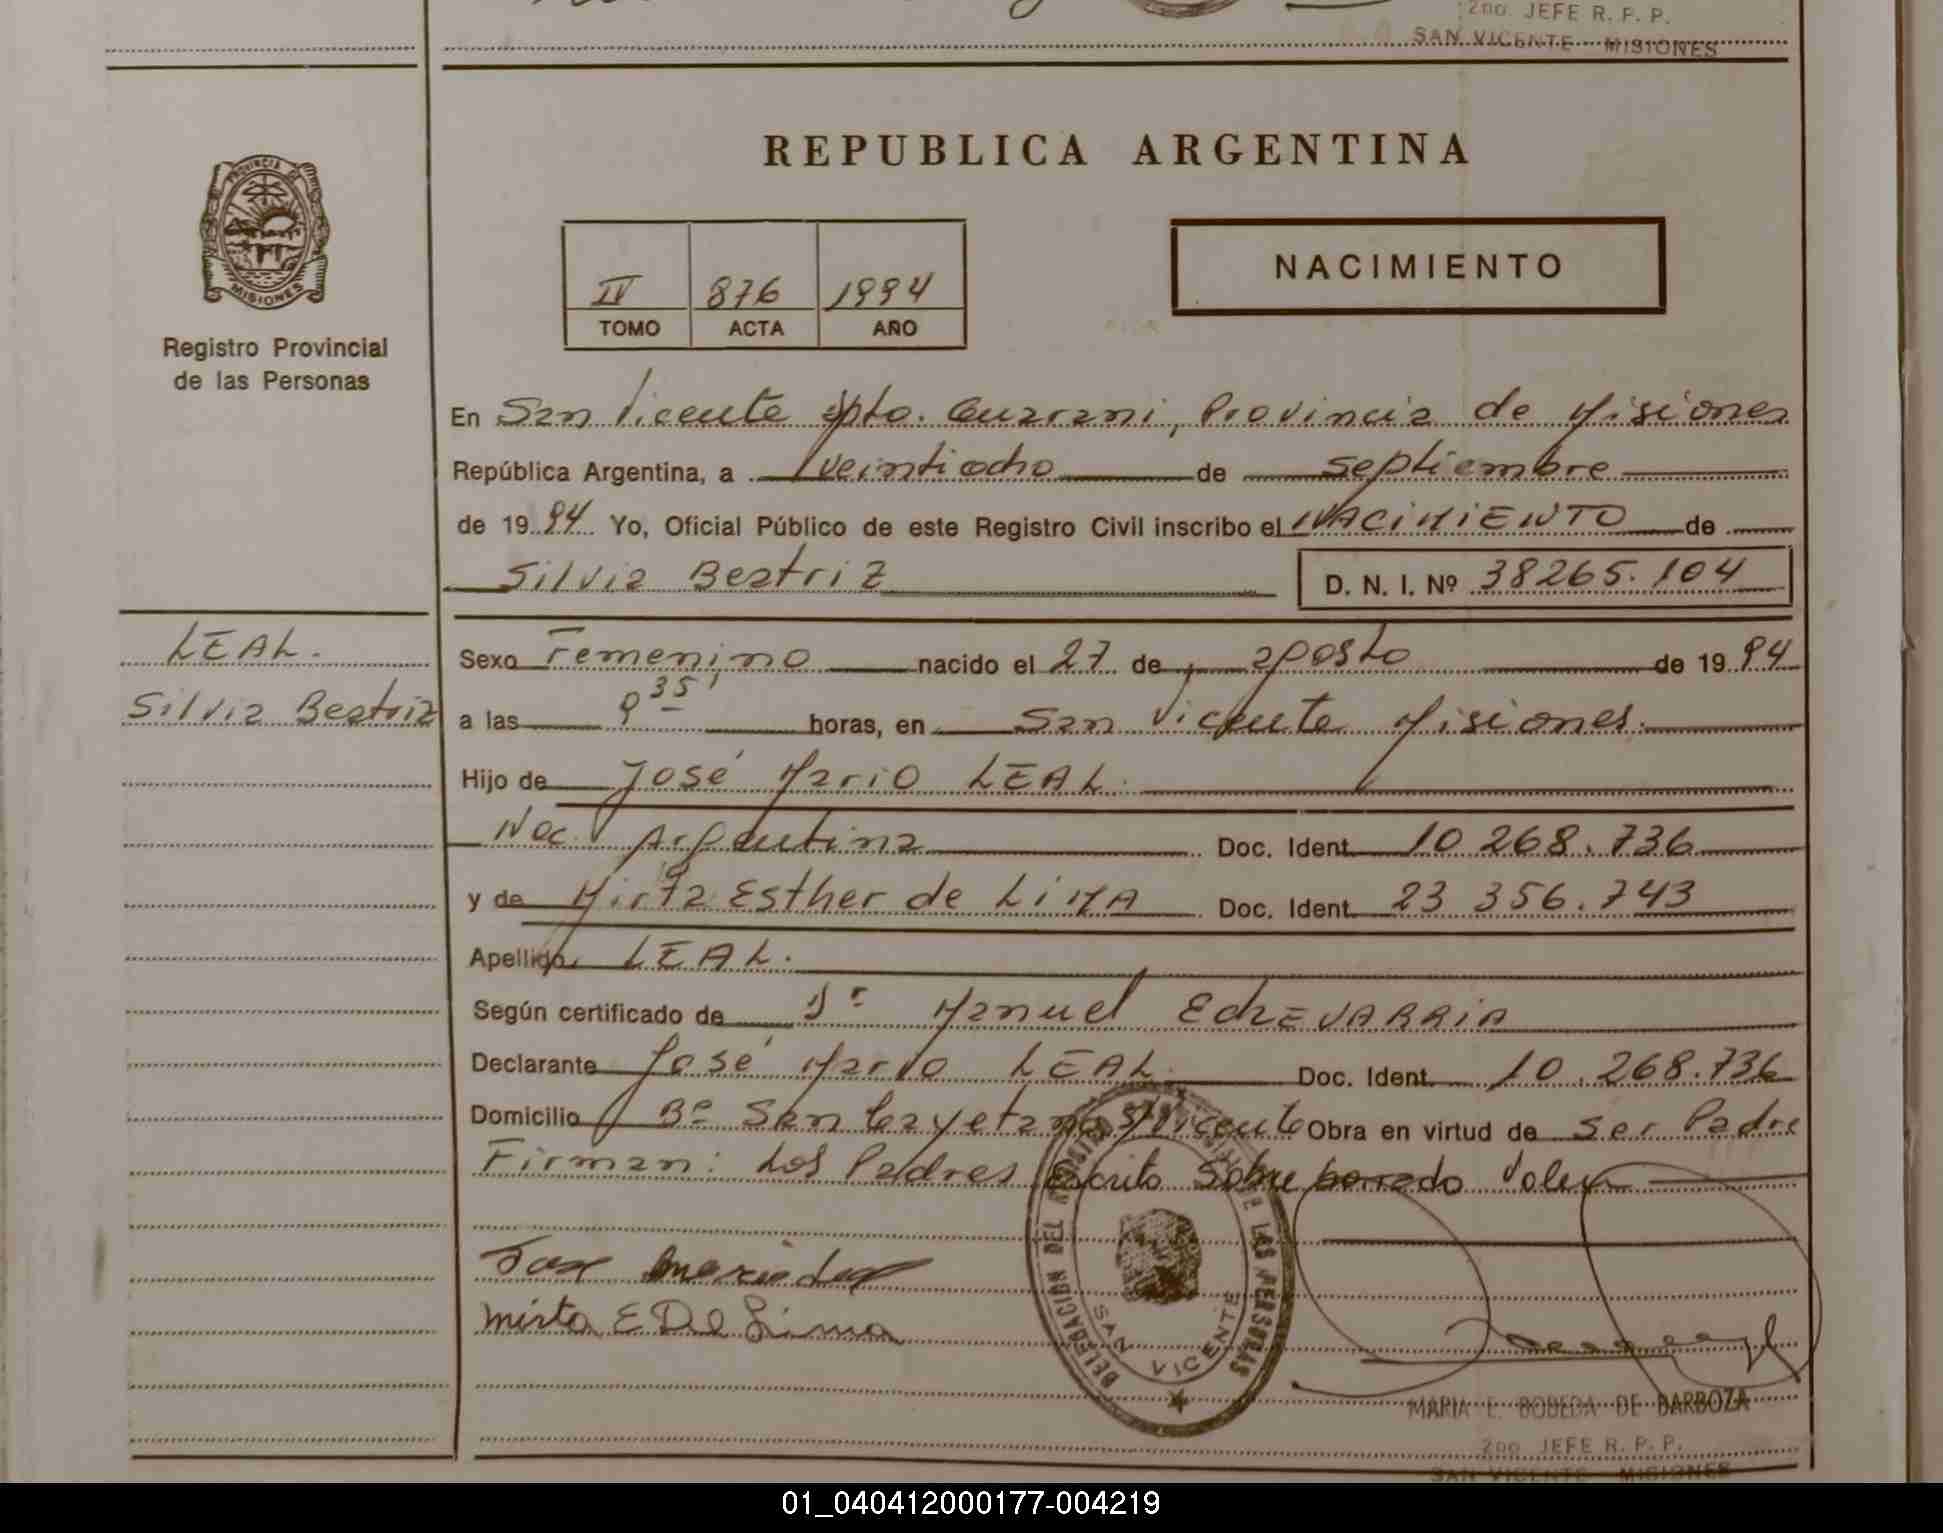 2no. JEFE R. P. P.
SAN VICENTE - MISIONES
REPUBLICA ARGENTINA
PROVINCIA DE
MISIONES
Registro Provincial
de las Personas
IV 876 1994
TOMO ACTA AÑO
NACIMIENTO
En San Vicente Dpto. Guarani, Provincia de Misiones
República Argentina, a veintiocho de septiembre
de 1994 Yo, Oficial Público de este Registro Civil inscribo el NACIMIENTO de
Silvia Beatriz D. N. I. Nº 38265.104
LEAL.
Silvia Beatriz
Sexo Femenino nacido el 27 de agosto de 1994
a las 9 35 horas, en San Vicente Misiones.
Hijo de José Mario LEAL.
Nac. Argentina Doc. Ident. 10 268.736
y de Mirta Esther de LiMA Doc. Ident. 23 356.743
Apellido LEAL.
Según certificado de Dr Manuel EchEVARRiA
Declarante José Mario LEAL. Doc. Ident. 10.268.736
Domicilio Bº San Cayetano S/Vicente Obra en virtud de ser Padre
Firman: Los Padres Escrito Sobre borrado Vale
Jose Mario Leal
Mirta E De Lima
DELEGACION DEL REGISTRO PROVINCIAL DE LAS PERSONAS
SAN VICENTE
MARIA E. BOBEDA DE BARBOZA
2no. JEFE R. P. P.
SAN VICENTE - MISIONES
01_040412000177-004219